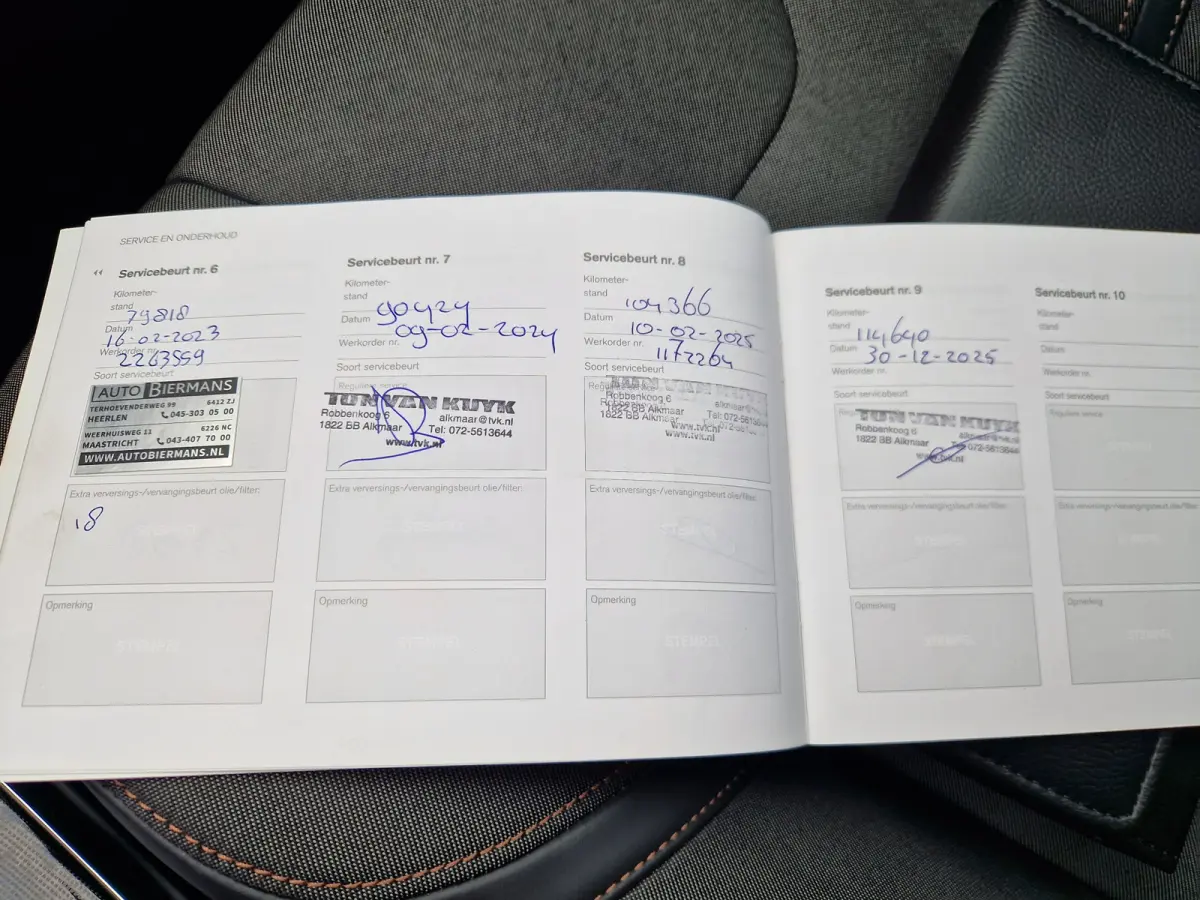 SERVICE EN ONDERHOUD
‹‹ Servicebeurt nr. 6
Kilometer-
stand 79818
Datum 16-02-2023
Werkorder nr. 2263559
Soort servicebeurt
AUTO BIERMANS
TERHOEVENDERWEG 99 6412 ZJ
HEERLEN 045-303 05 00
WEERHUISWEG 12 6226 NC
MAASTRICHT 043-407 70 00
WWW.AUTOBIERMANS.NL
Extra verversings-/vervangingsbeurt olie/filter:
STEMPEL
Opmerking
STEMPEL
Servicebeurt nr. 7
Kilometer-
stand 90424
Datum 09-02-2024
Werkorder nr.
Soort servicebeurt
Reguliere service
TON VAN KUYK
Robbenkoog 6 alkmaar@tvk.nl
1822 BB Alkmaar Tel: 072-5613644
www.tvk.nl
Extra verversings-/vervangingsbeurt olie/filter:
STEMPEL
Opmerking
STEMPEL
Servicebeurt nr. 8
Kilometer-
stand 104366
Datum 10-02-2025
Werkorder nr. 1172264
Soort servicebeurt
Reguliere service
TON VAN KUYK
Robbenkoog 6
1822 BB Alkmaar
www.tvk.nl
www.tvk.nl
Extra verversings-/vervangingsbeurt olie/filter:
STEMPEL
Opmerking
STEMPEL
Servicebeurt nr. 9
Kilometer-
stand 114640
Datum 30-12-2025
Werkorder nr.
Soort servicebeurt
TON VAN KUYK
Robbenkoog 6 alkmaar@tvk.nl
1822 BB Alkmaar Tel: 072-5613644
www.tvk.nl
Extra verversings-/vervangingsbeurt olie/filter:
STEMPEL
Opmerking
STEMPEL
Servicebeurt nr. 10
Kilometer-
stand
Datum
Werkorder nr.
Soort servicebeurt
Reguliere service
Extra verversings-/vervangingsbeurt olie/filter:
STEMPEL
Opmerking
STEMPEL